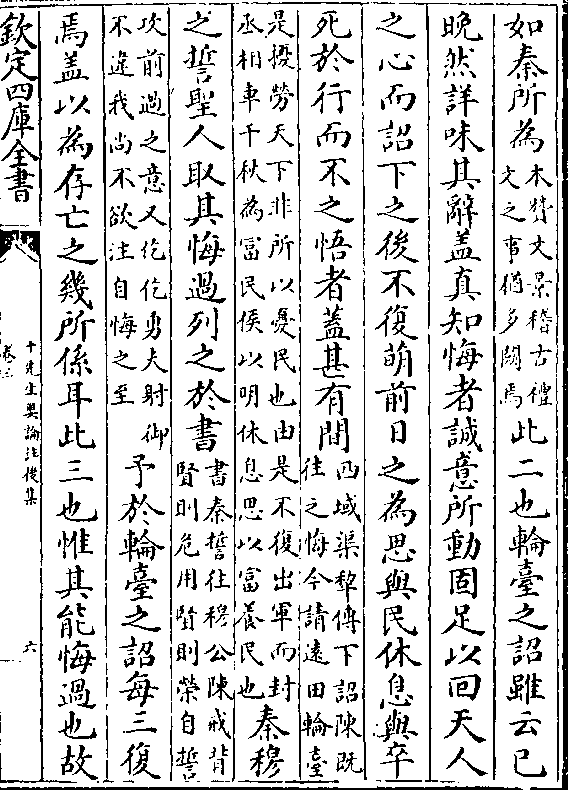 如秦所為本贊文景稽古禮文之事猶多闕焉此二也輪臺之詔雖云已
晚然詳味其辭蓋真知悔者誠意所動固足以回天人
之心而詔下之後不復萌前日之為思與民休息與卒
死於行而不之悟者蓋甚有間西域渠犂傳下詔陳既往之悔今請逺田輪臺
是擾勞天下非所以憂民也由是不復出軍而封丞相車千秋為富民侯以明休息思以富養民也秦穆
之誓聖人取其悔過列之於書書秦誓往穆公陳戒背賢則危用賢則榮自誓
攻前過之意又仡仡勇夫射御不違我尚不欲注自悔之至予於輪臺之詔每三復
焉蓋以為存亡之幾所係耳此三也惟其能悔過也故
欽定四庫全書
卷三
十先生奧論註後集
六